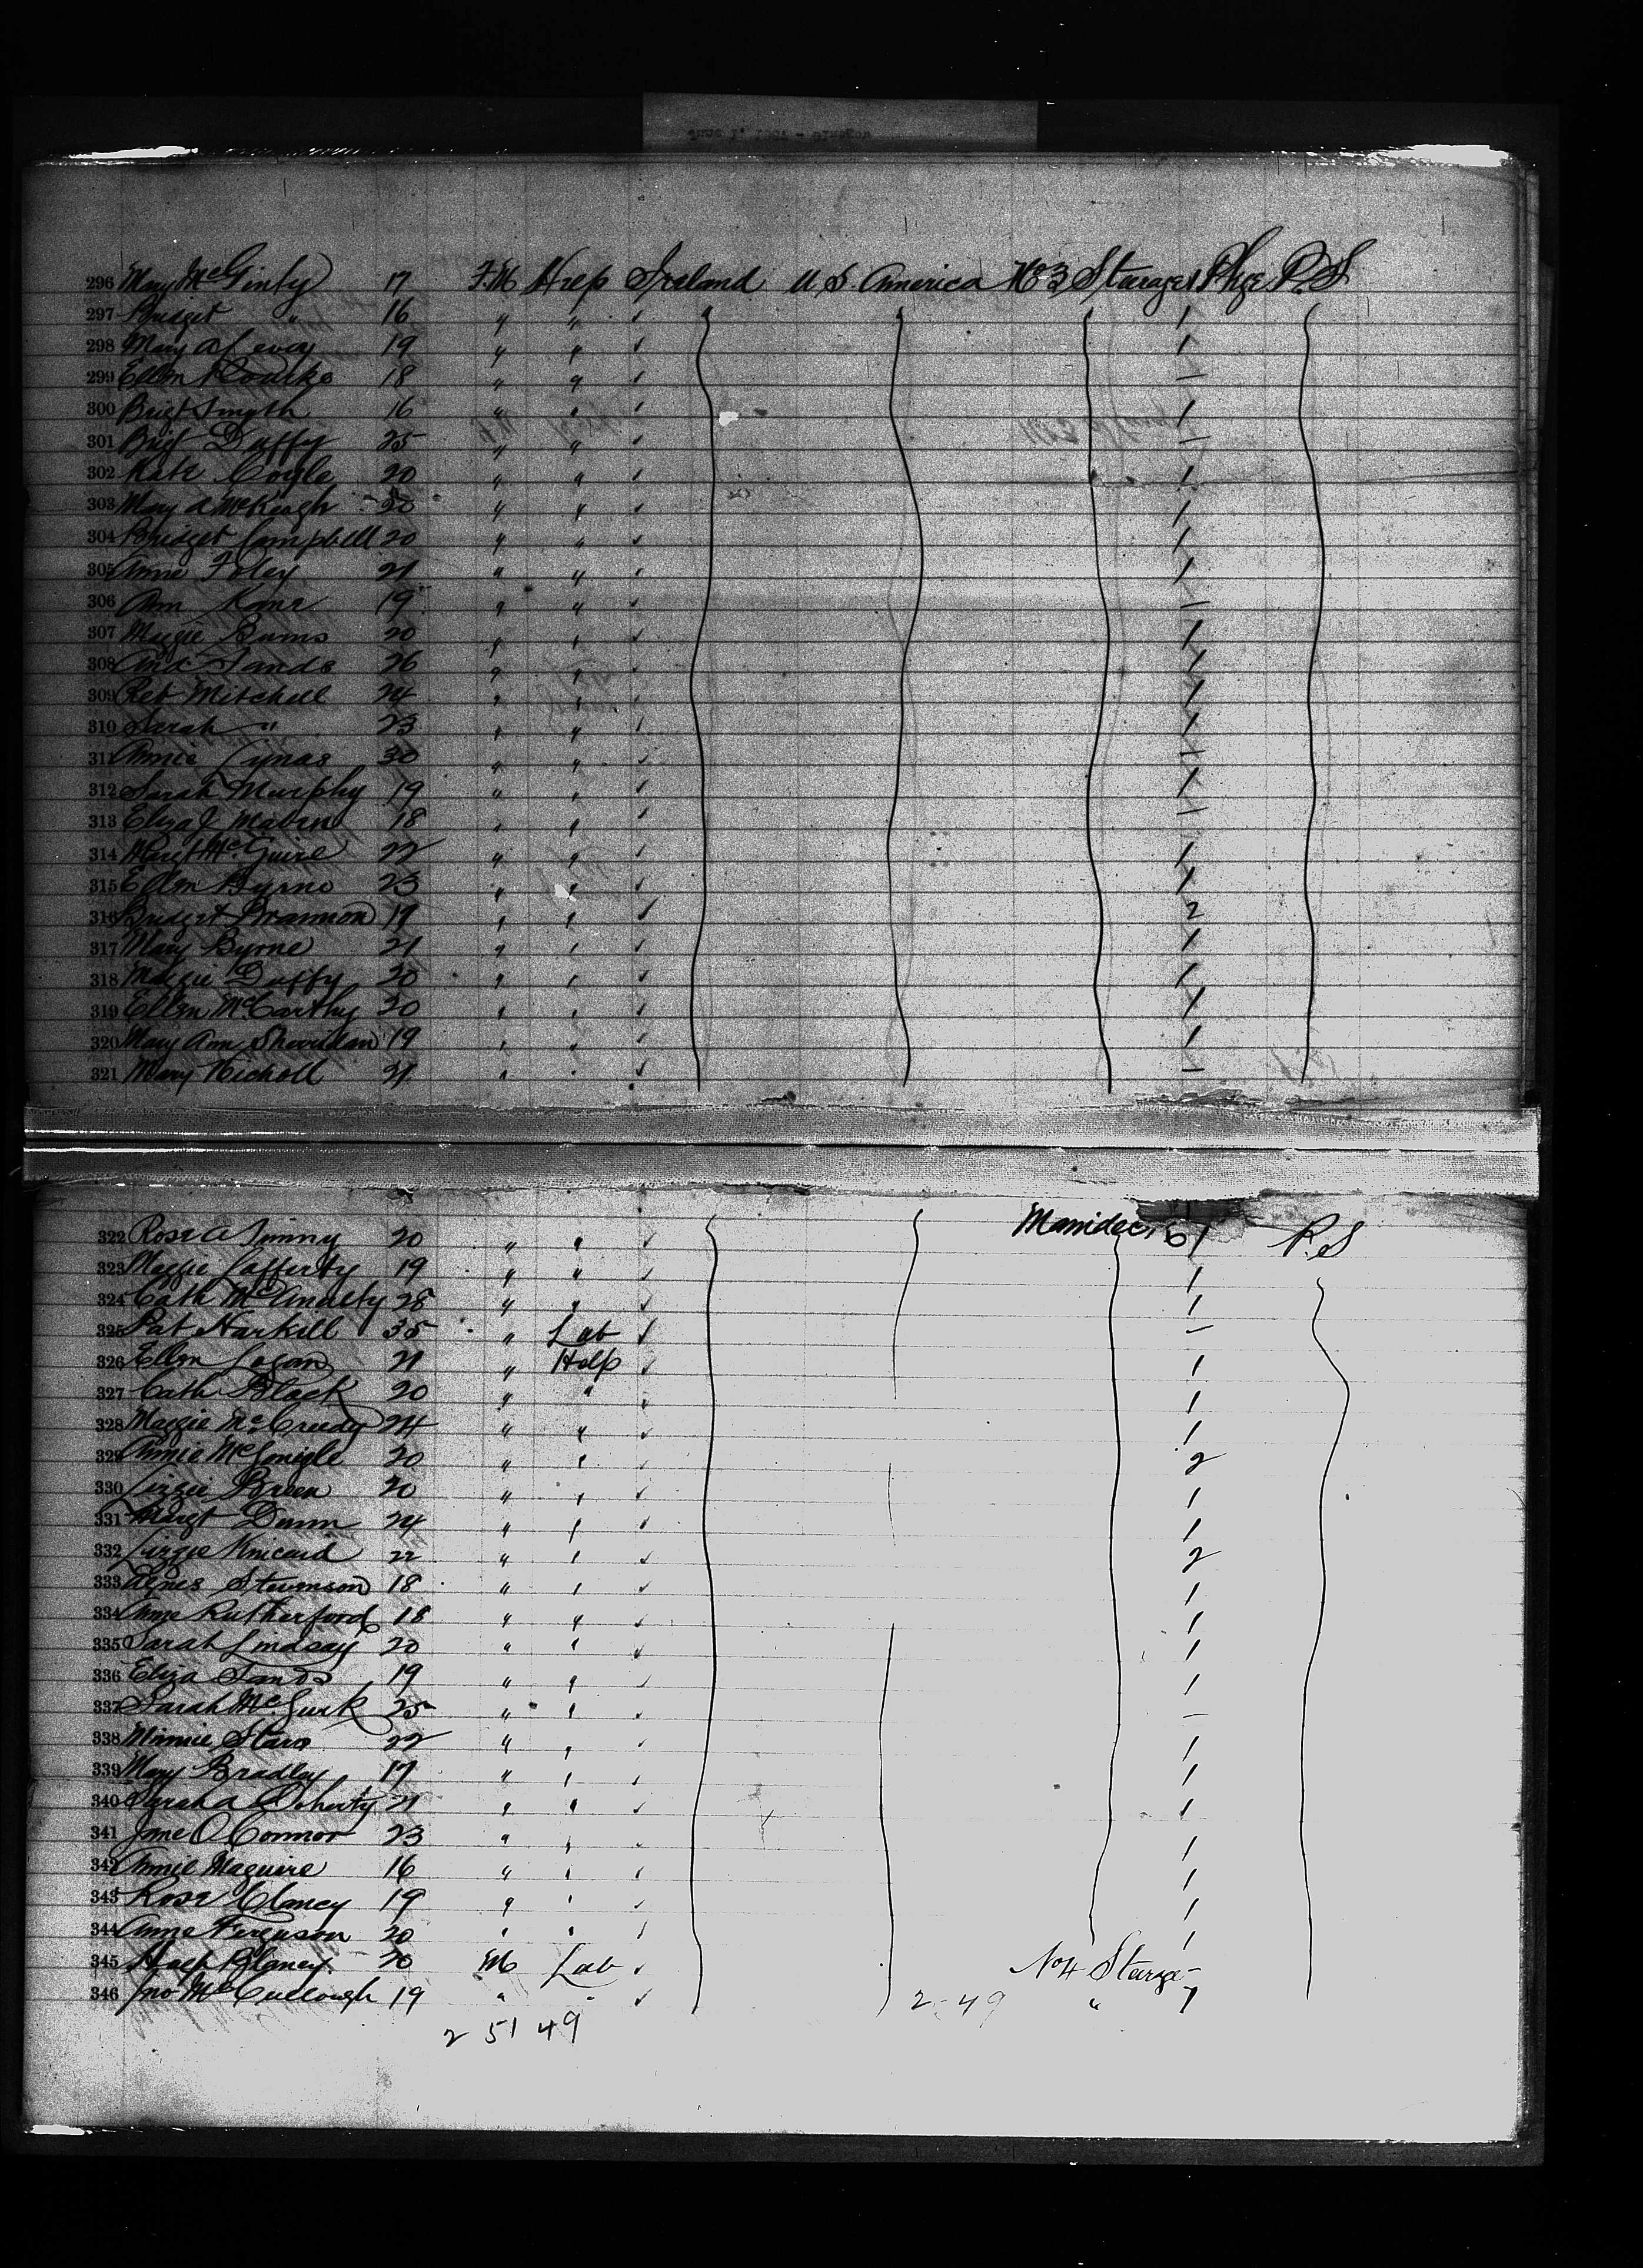 296 Mary McGinty 17 F.M Help Ireland U.S. America No 3 Steerage 1 Pkge P.S
297 Bridget " 16 " " ✓ 1
298 Mary A 19 " " ✓ 1
299 Ellen Rourke 18 " " ✓ —
300 Brigt Smyth 16 " " ✓ 1
301 Brigt Duffy 25 " " ✓ —
302 Kate Coyle 20 " " ✓ 1
303 Mary A McKeogh 20 " " ✓ 1
304 Bridget Campbell 20 " " ✓ 1
305 Annie Foley 21 " " ✓ 1
306 Ann Kane 19 " " ✓ —
307 Maggie Burns 20 " " ✓ 1
308 Sands 26 " " ✓ 1
309 Reb Mitchell 24 " " ✓ 1
310 Sarah " 23 " " ✓ 1
311 Annie Lynas 30 " " ✓ —
312 Sarah Murphy 19 " " ✓ 1
313 Eliza J 18 " " ✓ —
314 Margt McGuire 22 " " ✓ 1
315 Ellen Byrne 23 " " ✓ 1
316 Bridget Brannon 19 " " ✓ 2
317 Mary Byrne 21 " " ✓ 1
318 Maggie Duffy 20 " " ✓ 1
319 Ellen McCarthy 20 " " ✓ 1
320 Mary Ann Sheridan 19 " " ✓ 1
321 Mary Nicholl 21 " " ✓ —
322 Rose A 20 " " ✓ 1 P.S
323 Maggie Lafferty 19 " " ✓ 1
324 Cath McAnulty 28 " " ✓ 1
325 Pat Harkill 35 " Lab ✓ —
326 Ellen Logan 21 " Help ✓ 1
327 Cath Black 20 " " ✓ 1
328 Maggie McCreedy 24 " " ✓ 1
329 Annie McGonigle 20 " " ✓ 2
330 Lizzie Breen 20 " " ✓ 1
331 Margt Dunn 24 " " ✓ 1
332 Lizzie Kincaid 22 " " ✓ 2
333 Agnes Stevenson 18 " " ✓ 1
334 Anne Rutherford 18 " " ✓ 1
335 Sarah Lindsay 20 " " ✓ 1
336 Eliza Sands 19 " " ✓ 1
337 Sarah McGurk 25 " " ✓ —
338 Minnie 22 " " ✓ 1
339 Mary Bradley 17 " " ✓ 1
340 Sarah A Doherty 21 " " ✓ 1
341 Jane O'Connor 23 " " ✓ 1
342 Annie Maguire 16 " " ✓ 1
343 Rose Clancy 19 " " ✓ 1
344 Anne Ferguson 20 " " ✓ 1
345 20 M Lab ✓ No 4 Steerge —
346 Jno McCullough 19 " " ✓ 2-49 " 1
2 51 49